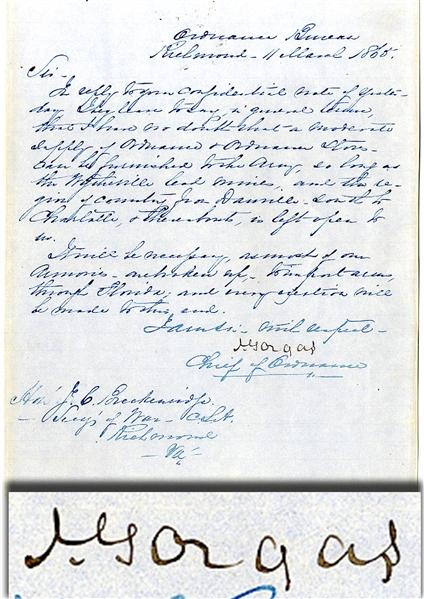 Ordnance Bureau
Richmond - 11 March 1865.
Sir -
In reply to your confidential note of yester-
day I beg leave to say, in general terms,
that I have no doubt that a moderate
supply of Ordnance & Ordnance Stores
can be furnished to the Army, so long as
the Wytheville lead mines, and the re-
gion of country from Danville - south to
Charlotte, & thereabouts, is left open to
us.
It will be necessary, as most of our
Armories - are broken up, - to import arms,
through Florida, and every exertion will
be made to this end.
I am Sir - with respect -
J Gorgas
Chief of Ordnance
Hon J. C. Breckenridge
Secy of War - C.S.A.
Richmond
- Va -
J Gorgas